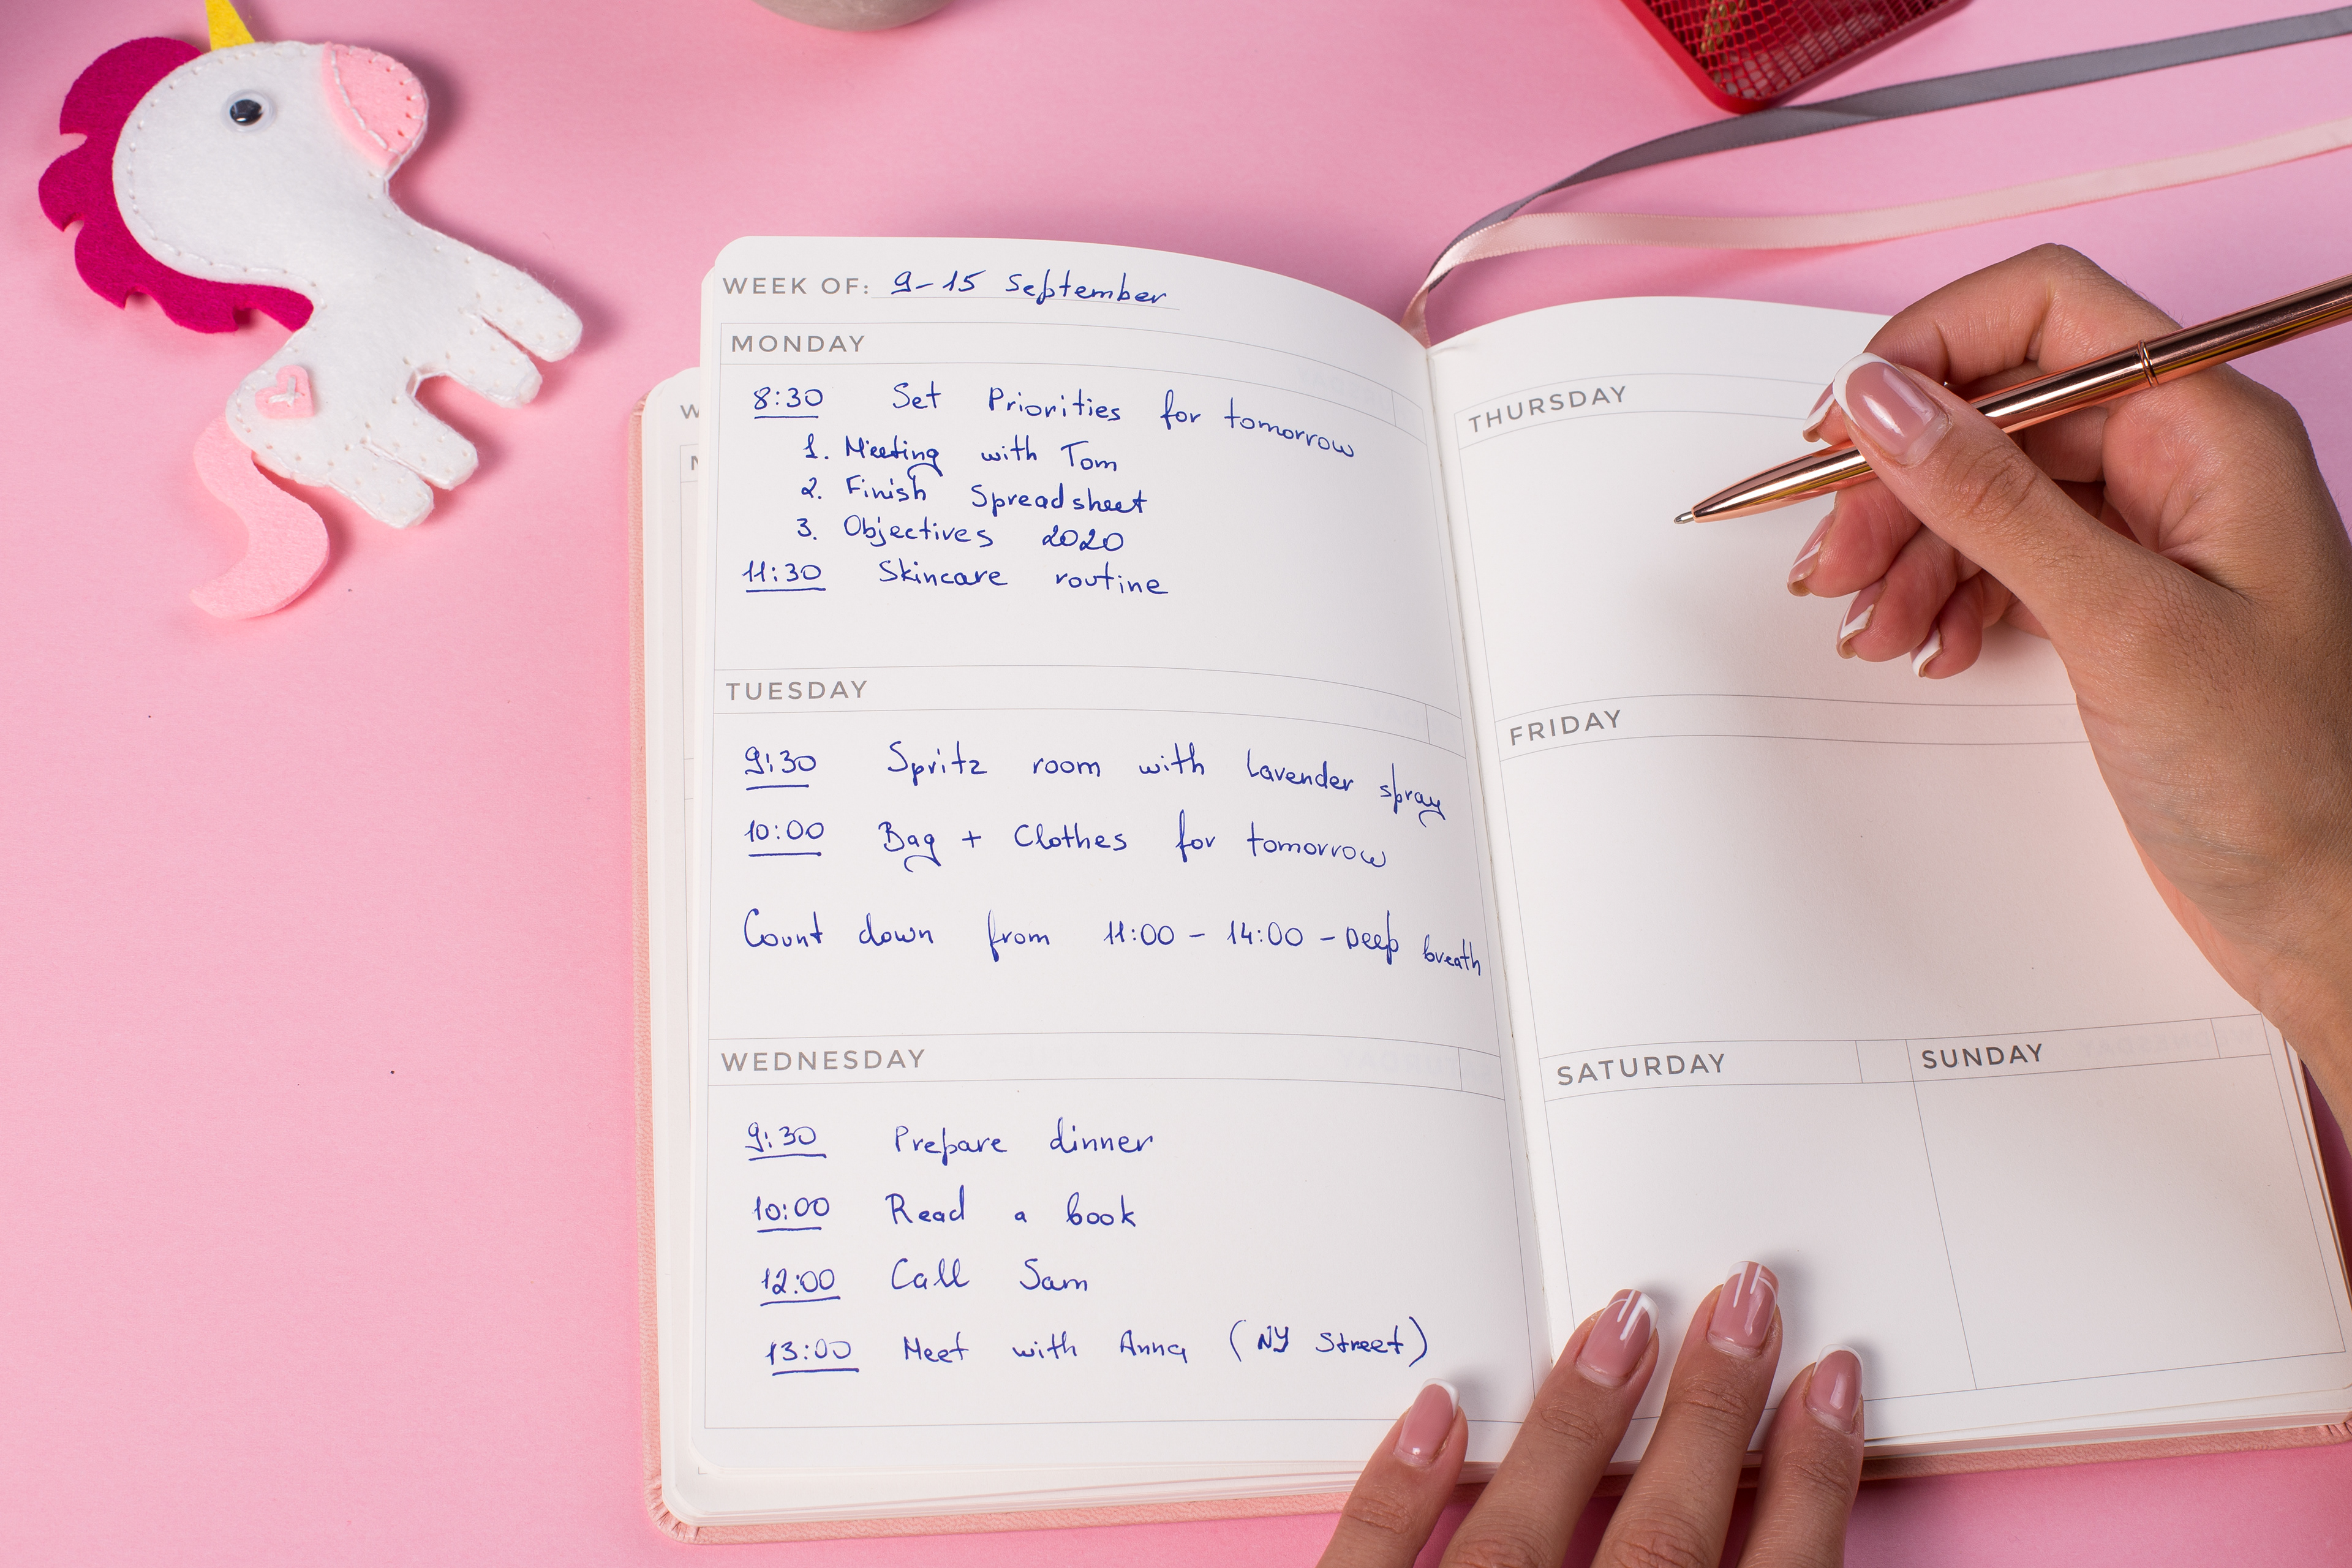 WEEK OF: 9-15 September
MONDAY
8:30 Set Priorities for tomorrow
1. Meeting with Tom
2. Finish Spreadsheet
3. Objectives 2020
11:30 Skincare routine
TUESDAY
9:30 Spritz room with lavender spray
10:00 Bag + Clothes for tomorrow
Count down from 11:00 - 14:00 - Deep breath
WEDNESDAY
9:30 Prepare dinner
10:00 Read a book
12:00 Call Sam
13:00 Meet with Anna (NY Street)
THURSDAY
FRIDAY
SATURDAY
SUNDAY